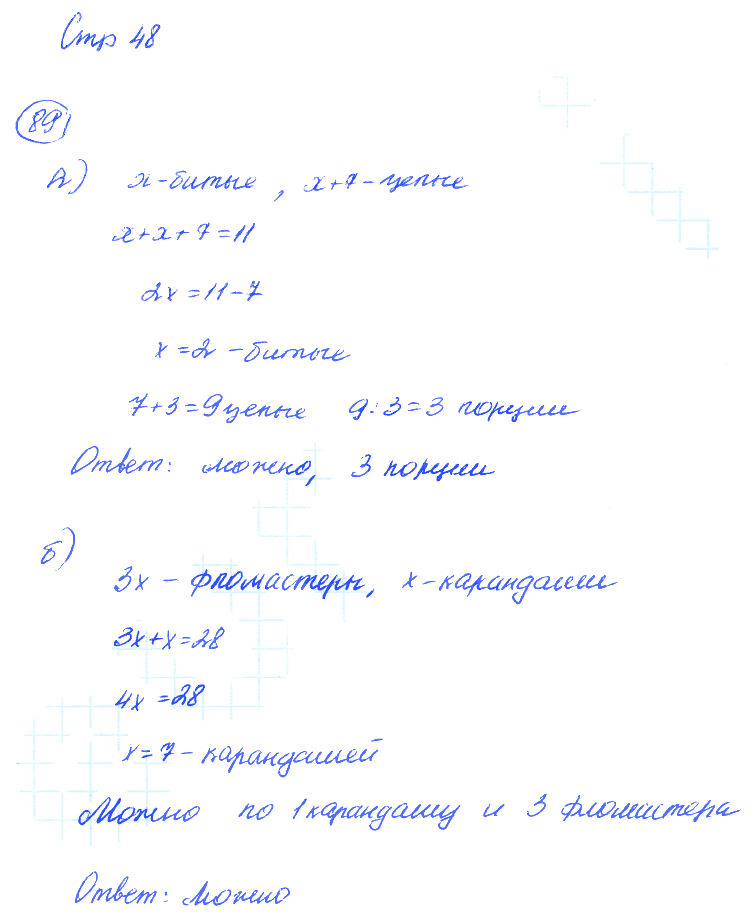 Стр 48
89
А) x - битые, x + 7 - целые
x + x + 7 = 11
2x = 11 - 7
x = 2 - битые
7 + 3 = 9 целые 9 : 3 = 3 порции
Ответ: можно, 3 порции
б)
3x - фломастеры, x - карандаши
3x + x = 28
4x = 28
x = 7 - карандашей
Можно по 1 карандашу и 3 фломастера
Ответ: можно